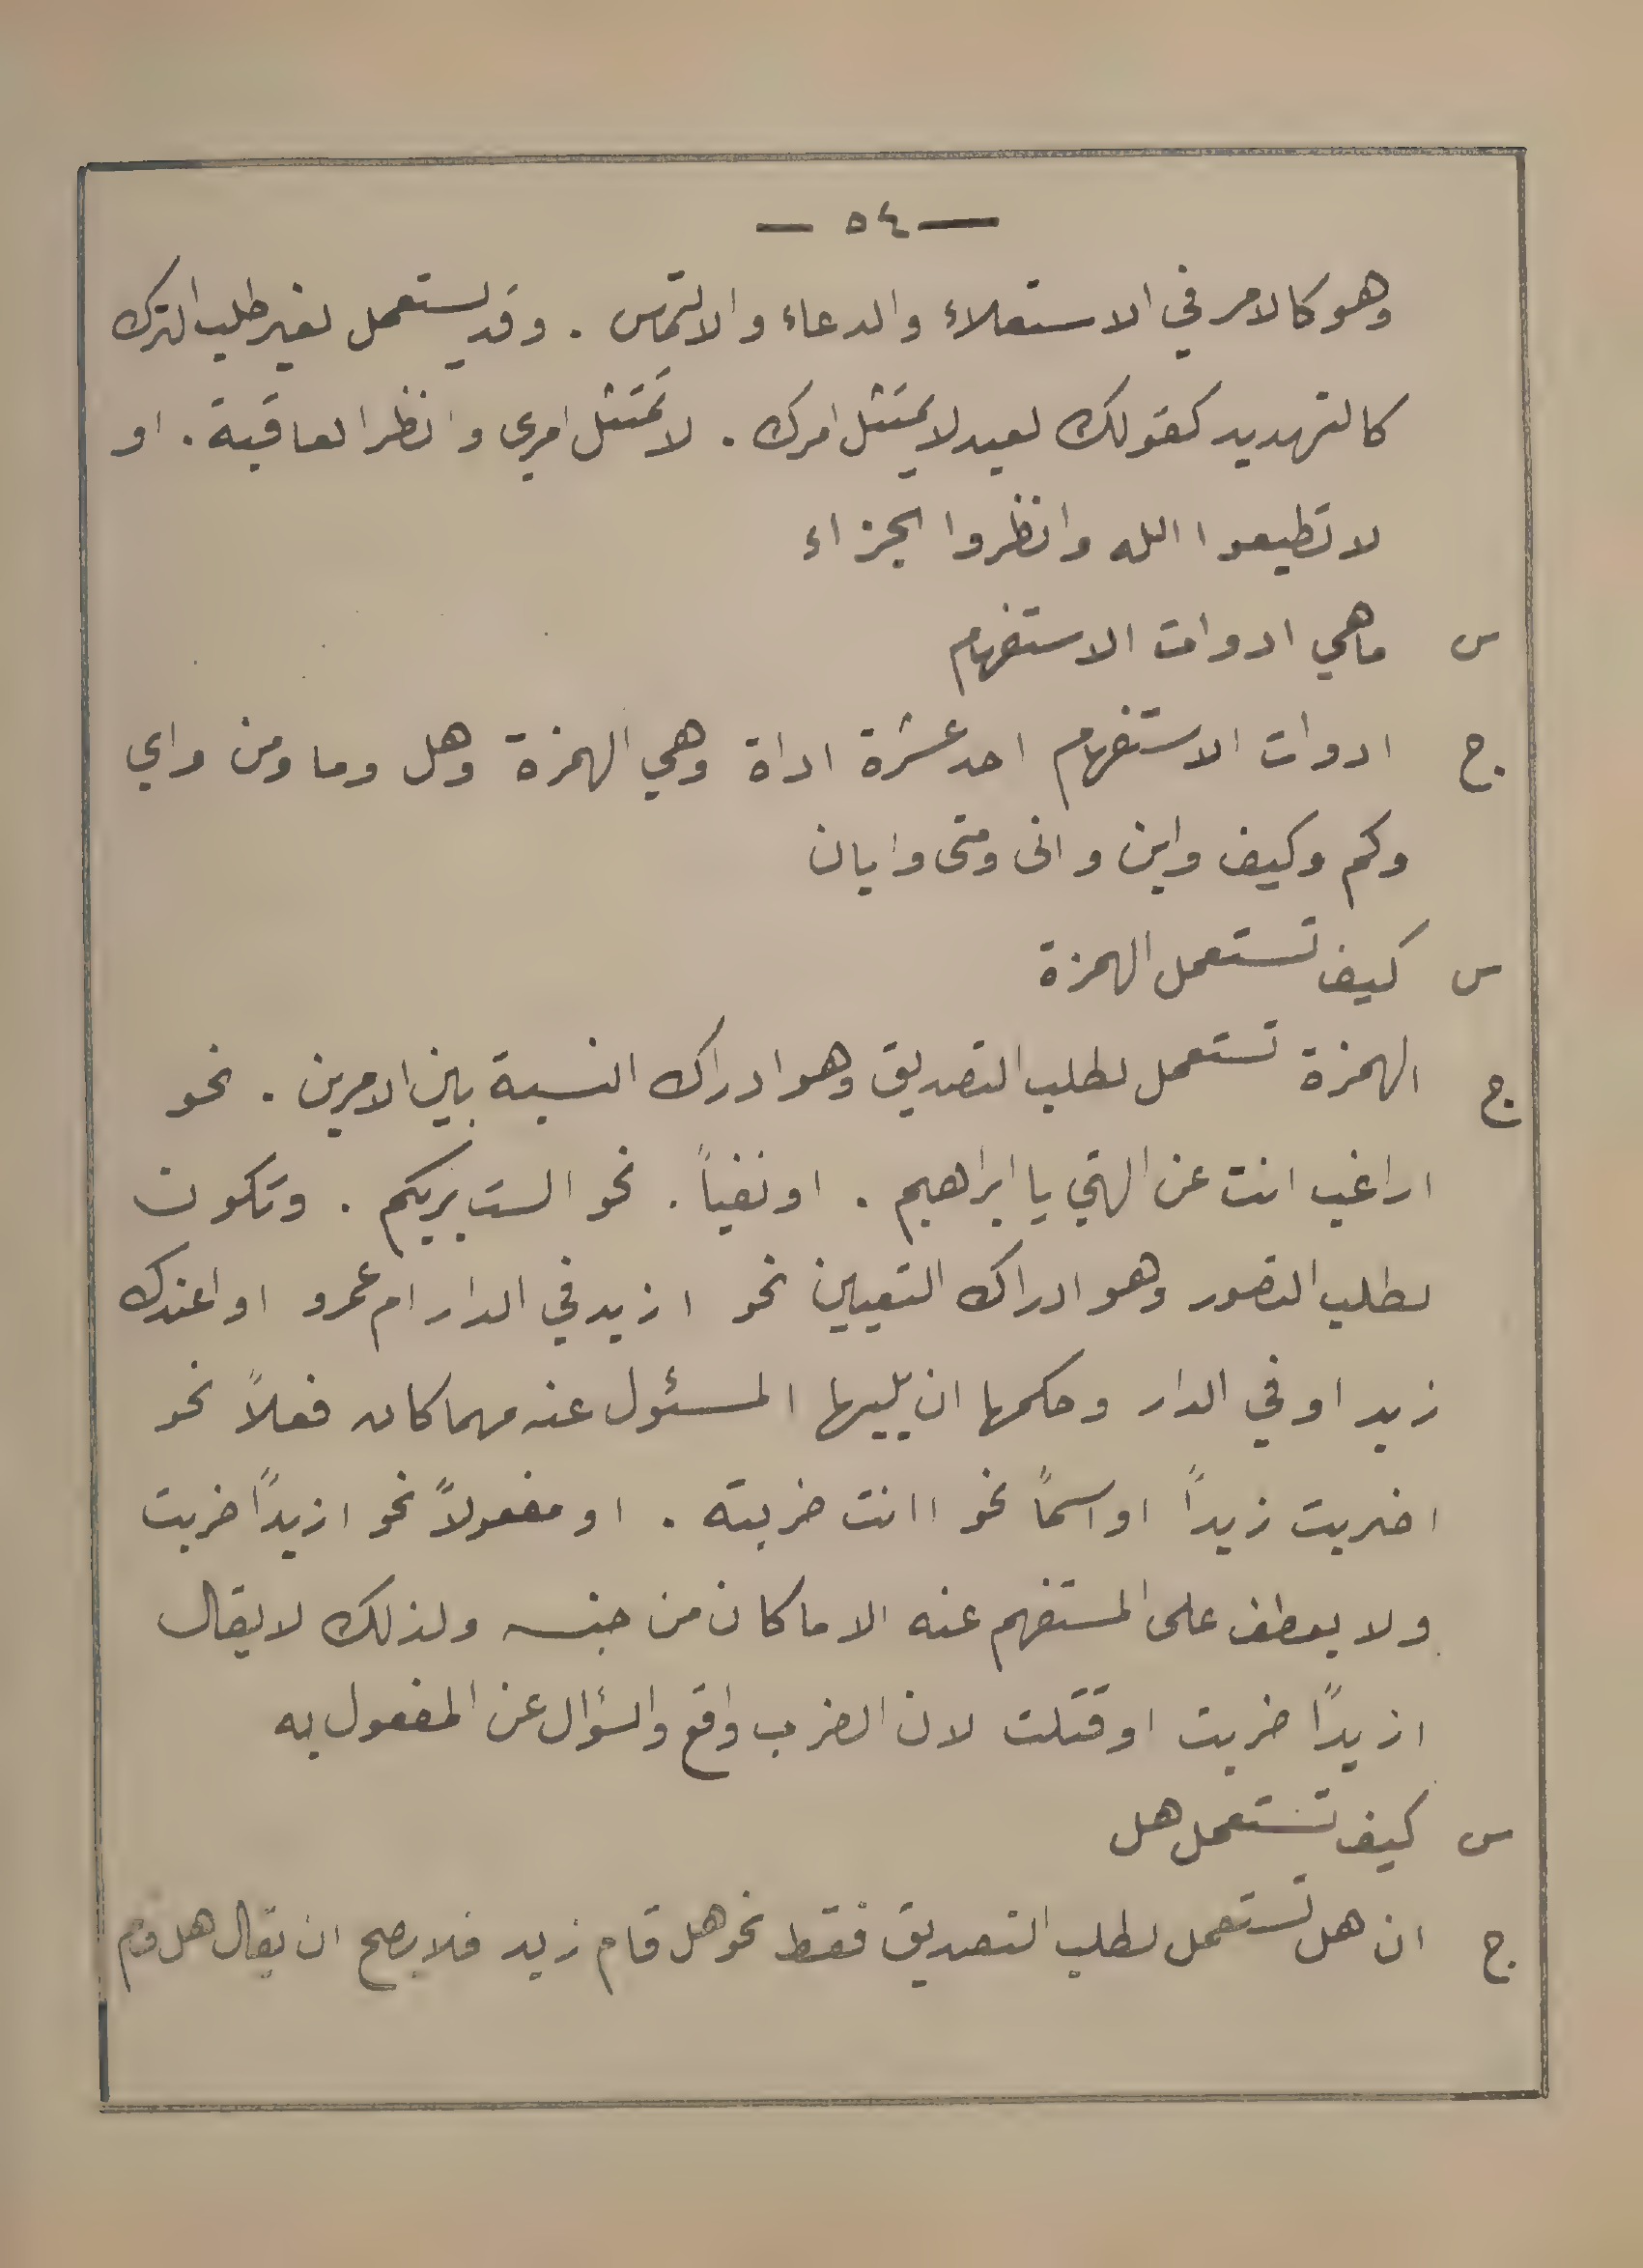 — ٥٤ —
وهو كالامر في الاستعلاء والدعاء والالتماس . وقد يستعمل لغير طلب الترك
كالتهديد كقولك لعبد لا يمتثل امرك . لا تمتثل امري وانظر العاقبة . او
لا تطيعوا الله وانظروا الجزاء
س ما هي ادوات الاستفهام
ج ادوات الاستفهام احد عشرة اداة وهي الهمزة وهل وما ومن واي
وكم وكيف واين وانى ومتى وايان
س كيف تستعمل الهمزة
ج الهمزة تستعمل لطلب التصديق وهو ادراك النسبة بين الامرين . نحو
اراغب انت عن الهتي يا ابراهيم . او نفياً . نحو الست بربكم . وتكون
لطلب التصور وهو ادراك التعيين نحو ازيد في الدار ام عمرو او اعندك
زيد او في الدار وحكمها ان يليها المسئول عنه مهما كان فعلاً نحو
اضربت زيداً او اسماً نحو اانت ضربته . او مفعولاً نحو ازيداً ضربت
ولا يعطف على المستفهم عنه الا ما كان من جنسه ولذلك لا يقال
ازيداً ضربت او قتلت لان الضرب واقع والسؤال عن المفعول به
س كيف تستعمل هل
ج ان هل تستعمل لطلب التصديق فقط نحو هل قام زيد فلا يصح ان يقال هل قام